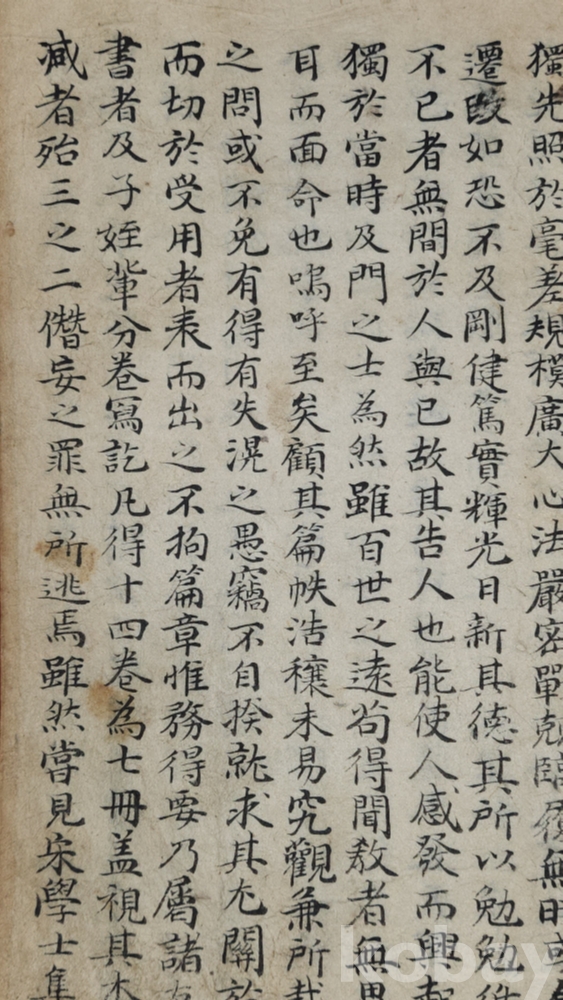 獨先照於毫差規模廣大心法嚴密單剋臨履無時或
遷改如恐不及剛健篤實輝光日新其德其所以勉勉
不已者無間於人與己故其告人也能使人感發而興起
獨於當時及門之士為然雖百世之遠苟得聞敎者無
耳而面命也嗚呼至矣顧其篇帙浩穰未易究觀兼所載
之問或不免有得有失滉之愚竊不自揆就求其尤關於
而切於受用者表而出之不拘篇章惟務得要乃屬諸
書者及子姪輩分卷寫訖凡得十四卷為七冊盖視其本
减者殆三之二僭妄之罪無所逃焉雖然嘗見宋學士集